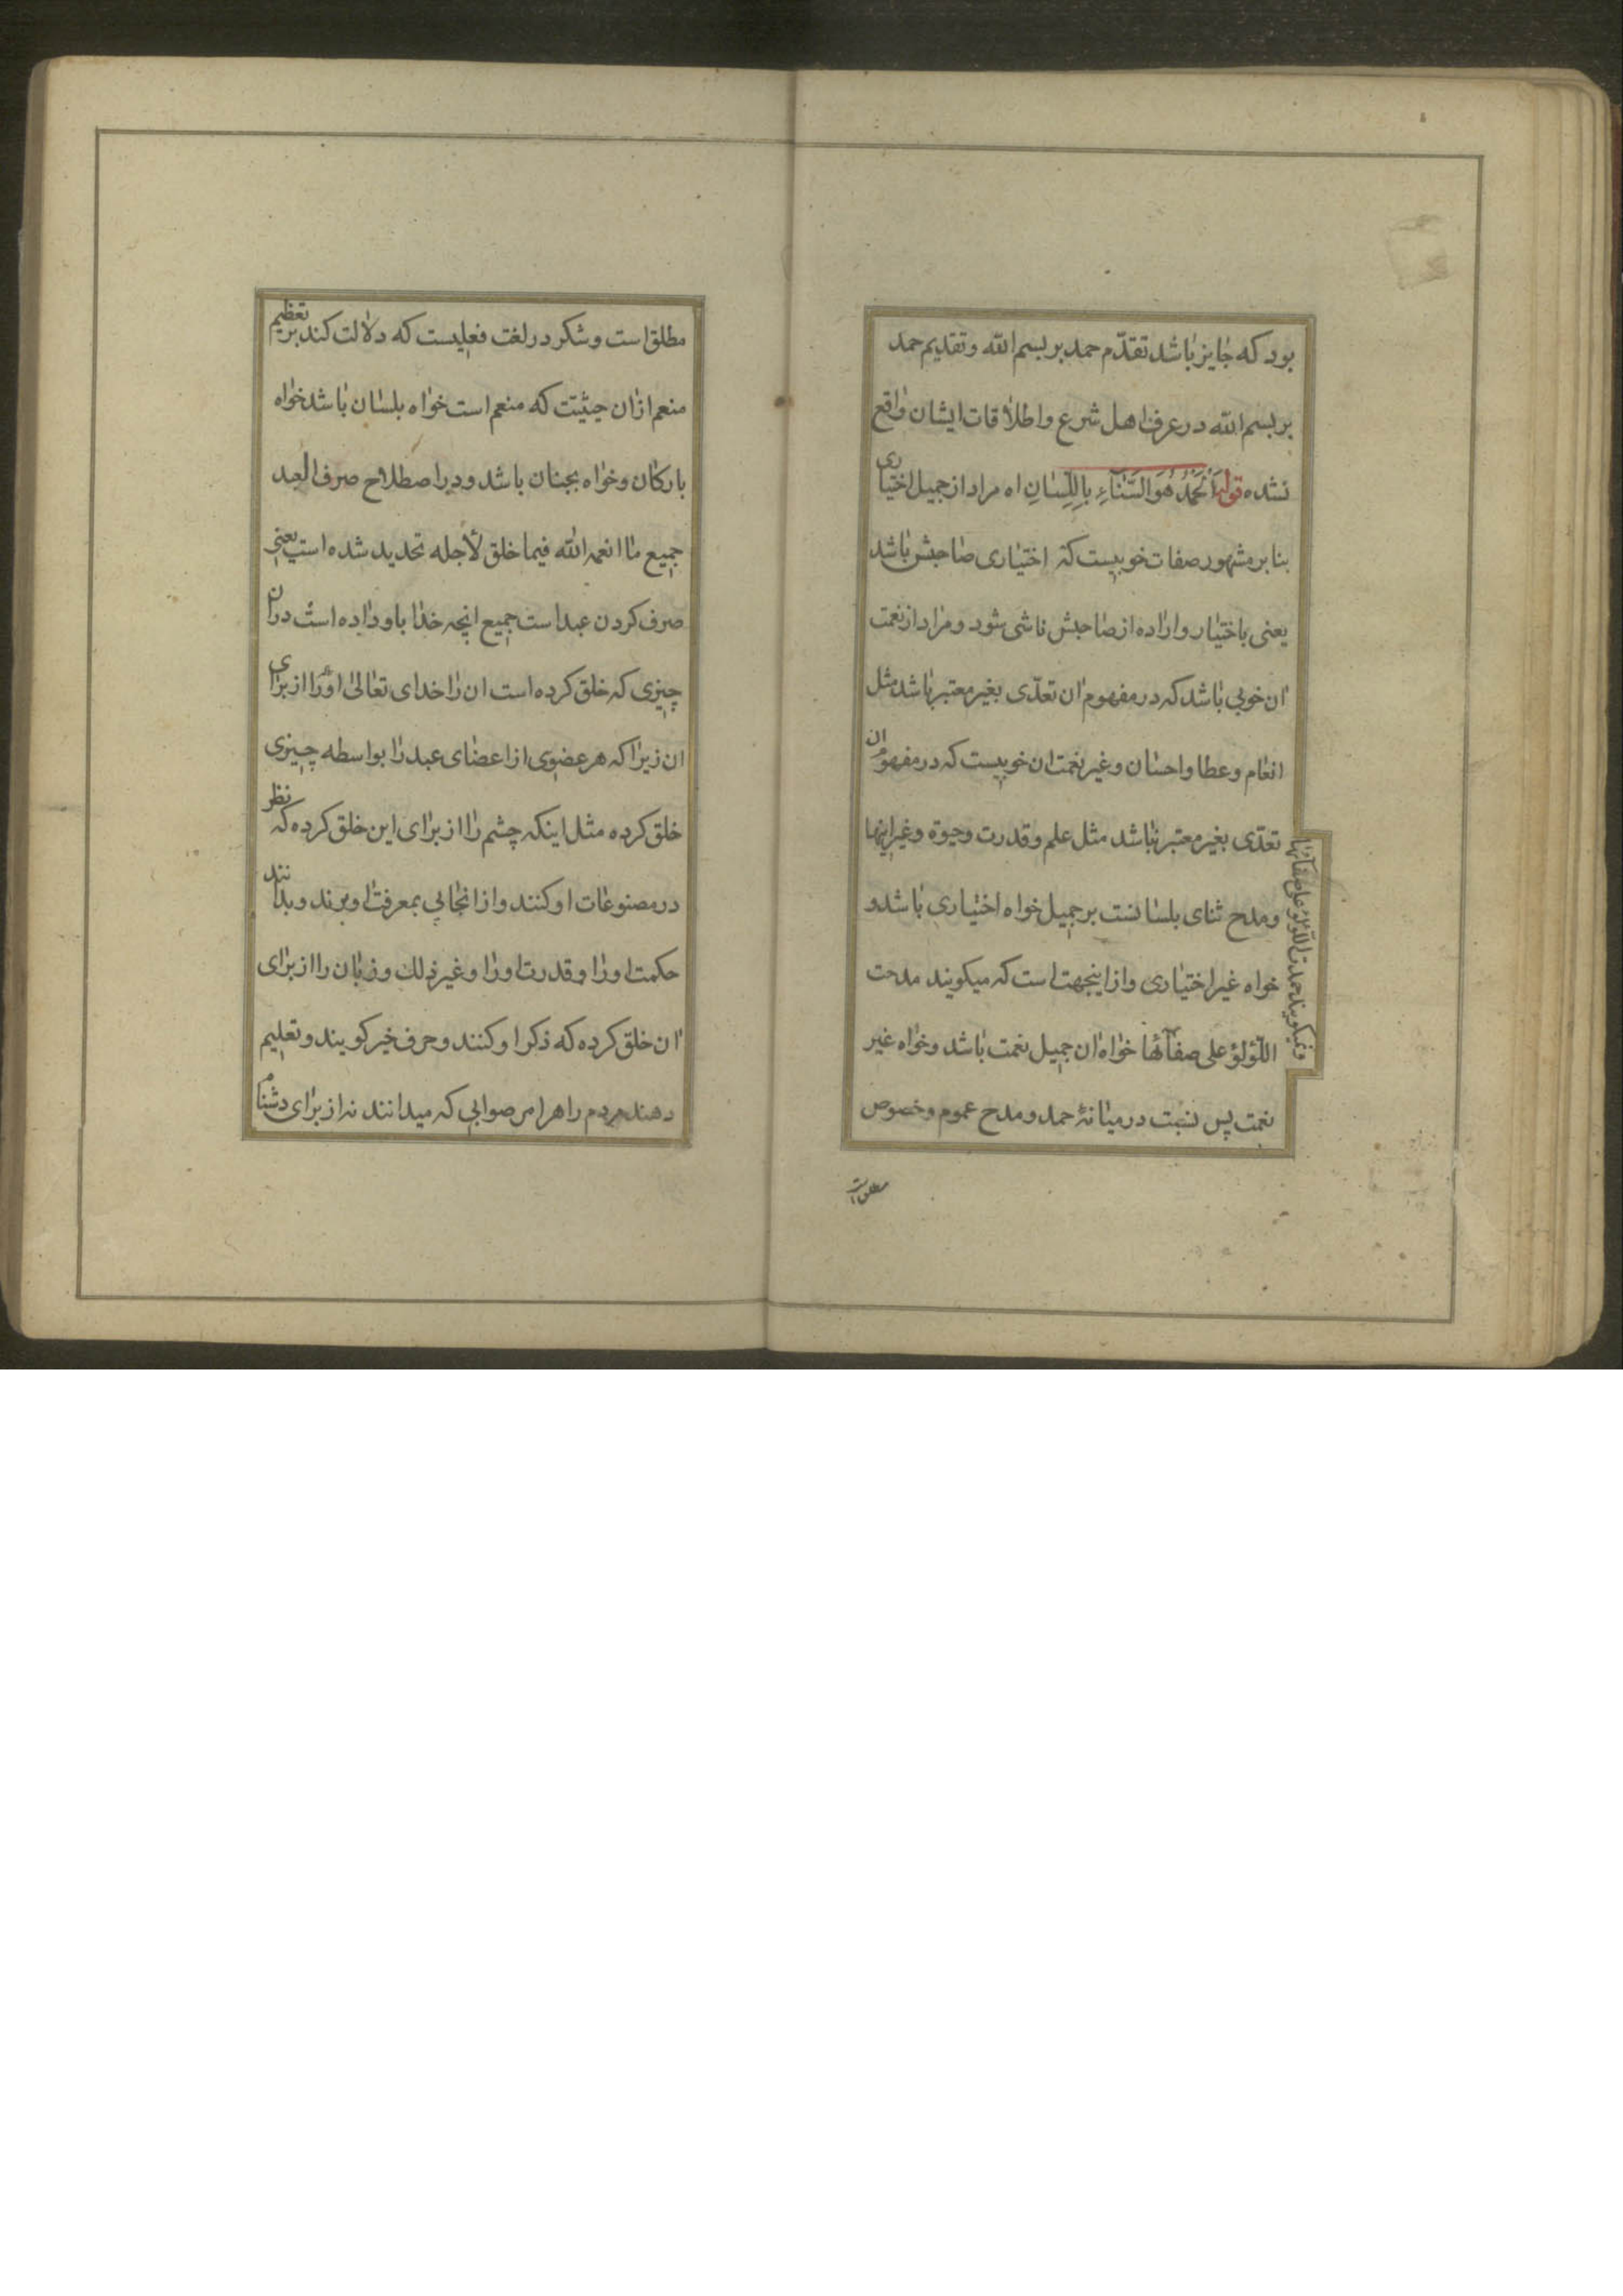 بود که جایز باشد تقدّم حمد بر بسم الله و تقدیم حمد
بر بسم الله در عرف اهل شرع و اطلاقات ایشان واقع
نشده قوله اَلْحَمْدُ هُوَ الثَّنَاءِ بِاللِّسٰانِ اه مراد از جمیل اختیاری
بنا بر مشهور صفات خوبیست که اختیاری صاحبش باشد
یعنی باختیار و اراده از صاحبش ناشی شود و مراد از نعمت
ان خوبی باشد که در مفهوم ان تعدّی بغیر معتبر باشد مثل
انعام و عطا و احسان و غیر نعمت ان خوبیست که در مفهوم ان
تعدّی بغیر معتبر نباشد مثل علم و قدرت و حیوة و غیر اینها
و مدح ثنای بلسانست بر جمیل خواه اختیاری باشد و
خواه غیر اختیاری و از اینجهت است که میکویند مدحت
اللّؤلؤ علی صفآئها خواه ان جمیل نعمت باشد و خواه غیر
نعمت پس نسبت در میانهٔ حمد و مدح عموم و خصوص
و نمیکویند حمدت اللّؤلؤ علی صفآئها
مطلق است
مطلق است و شکر در لغت فعلیست که دلالت کند بر تعظیم
منعم از ان حیثیّت که منعم است خواه بلسان باشد خواه
بارکان و خواه بجنان باشد و در اصطلاح صرف العبد
جمیع ما انعمه الله فیما خلق لأجله تحدید شده است یعنی
صرف کردن عبد است جمیع انچه خدا باو داده است در ان
چیزی که خلق کرده است ان را خدای تعالی او را از برای
ان زیرا که هر عضوی از اعضای عبد را بواسطه چیزی
خلق کرده مثل اینکه چشم را از برای این خلق کرده که نظر
در مصنوعات او کنند و از انجا پی بمعرفت او برند و بدانند
حکمت او را و قدرت او را و غیر ذلک و زبان را از برای
ان خلق کرده که ذکر او کنند و حرف خیر کویند و تعلیم
دهند مردم را هر امر صوابی که میدانند نه از برای دشنام